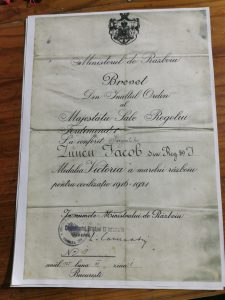 Ministerul de Războiu
Brevet
Din Inaltul Ordin
al
Majestatii Sale Regelui
Ferdinand I
S'a conferit
Iacob din Reg.
Medalia Victoria a marelui războiu
pentru civilizație 1916-1921
Ministrului de Războiu
No
anul luna ziua
București